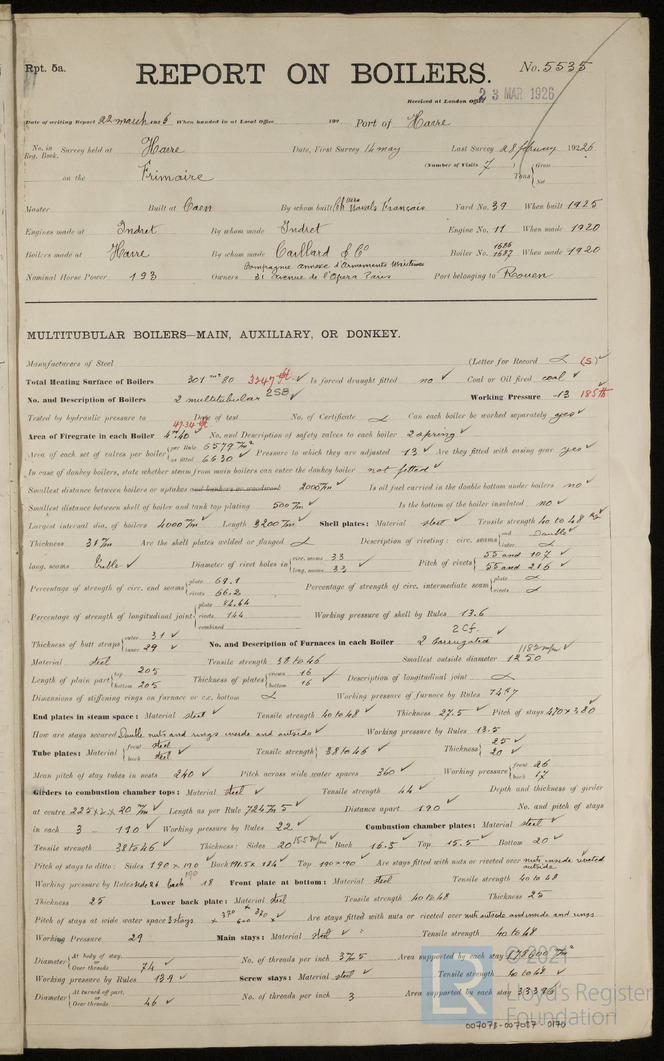 Rpt. 5a.
REPORT ON BOILERS.
No. 5535
Received at London Office 23 MAR 1926
Date of writing Report 22 march 1926 When handed in at Local Office 192 Port of Havre
No. in Reg. Book. Survey held at Havre Date, First Survey 14 may Last Survey 28 1926
(Number of Visits 7)
on the Frimaire Tons Gross Net
Master Built at Caen By whom built Navals Français Yard No. 39 When built 1925
Engines made at Indret By whom made Indret Engine No. 11 When made 1920
Boilers made at Havre By whom made Caillard & Co Boiler No. 1686 1687 When made 1920
Nominal Horse Power 193 Owners Compagnie Annexe d'Armements Maritimes 31 avenue de l'Opera Paris Port belonging to Rouen
MULTITUBULAR BOILERS—MAIN, AUXILIARY, OR DONKEY.
Manufacturers of Steel (Letter for Record (S)
Total Heating Surface of Boilers 301 m² 80 3247 Is forced draught fitted no Coal or Oil fired coal
No. and Description of Boilers 2 multitubular 2SB Working Pressure 13 185
Tested by hydraulic pressure to Date of test No. of Certificate Can each boiler be worked separately yes
Area of Firegrate in each Boiler No. and Description of safety valves to each boiler 2 spring
Area of each set of valves per boiler per Rule 6579 as fitted 6630 Pressure to which they are adjusted 13 Are they fitted with easing gear yes
In case of donkey boilers, state whether steam from main boilers can enter the donkey boiler not fitted
Smallest distance between boilers or uptakes and bunkers or woodwork 200 Is oil fuel carried in the double bottom under boilers no
Smallest distance between shell of boiler and tank top plating 500 Is the bottom of the boiler insulated no
Largest internal dia. of boilers 4000 Length 3200 Shell plates: Material steel Tensile strength 40 to 48
Thickness 31 Are the shell plates welded or flanged Description of riveting: circ. seams end Double inter.
long. seams Treble Diameter of rivet holes in circ. seams 33 long. seams 33 Pitch of rivets 55 and 107 55 and 216
Percentage of strength of circ. end seams plate 69.1 rivets 66.2 Percentage of strength of circ. intermediate seam plate rivets
Percentage of strength of longitudinal joint plate 84.64 rivets 144 combined Working pressure of shell by Rules 13.6
Thickness of butt straps outer 31 inner 29 No. and Description of Furnaces in each Boiler 2 Corrugated 2 Cf.
Material steel Tensile strength 38 to 46 Smallest outside diameter 1250 1182 m/m
Length of plain part top 205 bottom 205 Thickness of plates crown 16 bottom 16 Description of longitudinal joint
Dimensions of stiffening rings on furnace or c.c. bottom Working pressure of furnace by Rules
End plates in steam space: Material steel Tensile strength 40 to 48 Thickness 27.5 Pitch of stays 470 x 380
How are stays secured Double nuts and rings inside and outside Working pressure by Rules 13.5
Tube plates: Material front steel back steel Tensile strength 38 to 46 Thickness 25 20
Mean pitch of stay tubes in nests 240 Pitch across wide water spaces 360 Working pressure front 26 back 17
Girders to combustion chamber tops: Material steel Tensile strength 44 Depth and thickness of girder
at centre 225 x 2 x 20 Length as per Rule 724 5 Distance apart 190 No. and pitch of stays
in each 3 - 190 Working pressure by Rules 22 Combustion chamber plates: Material steel
Tensile strength 38 to 46 Thickness: Sides 20 15.5 m/m Back 16.5 Top 15.5 Bottom 20
Pitch of stays to ditto: Sides 190 x 170 Back 191.5 x 184 Top 190 x 190 Are stays fitted with nuts or riveted over nuts inside riveted outside
Working pressure by Rules sides 26 back 18 Front plate at bottom: Material steel Tensile strength 40 to 48
Thickness 25 Lower back plate: Material steel Tensile strength 40 to 48 Thickness 25
Pitch of stays at wide water space 3 stays Are stays fitted with nuts or riveted over nuts outside and inside and rings
Working Pressure 29 Main stays: Material steel Tensile strength 40 to 48
Diameter At body of stay, or Over threads 74 No. of threads per inch Area supported by each stay 178600
Working pressure by Rules 13.9 Screw stays: Material steel Tensile strength 40 to 48
Diameter At turned off part, or Over threads 46 No. of threads per inch 3 Area supported by each stay 33396
© 2021
Lloyd's Register
Foundation
007078-007087-0170